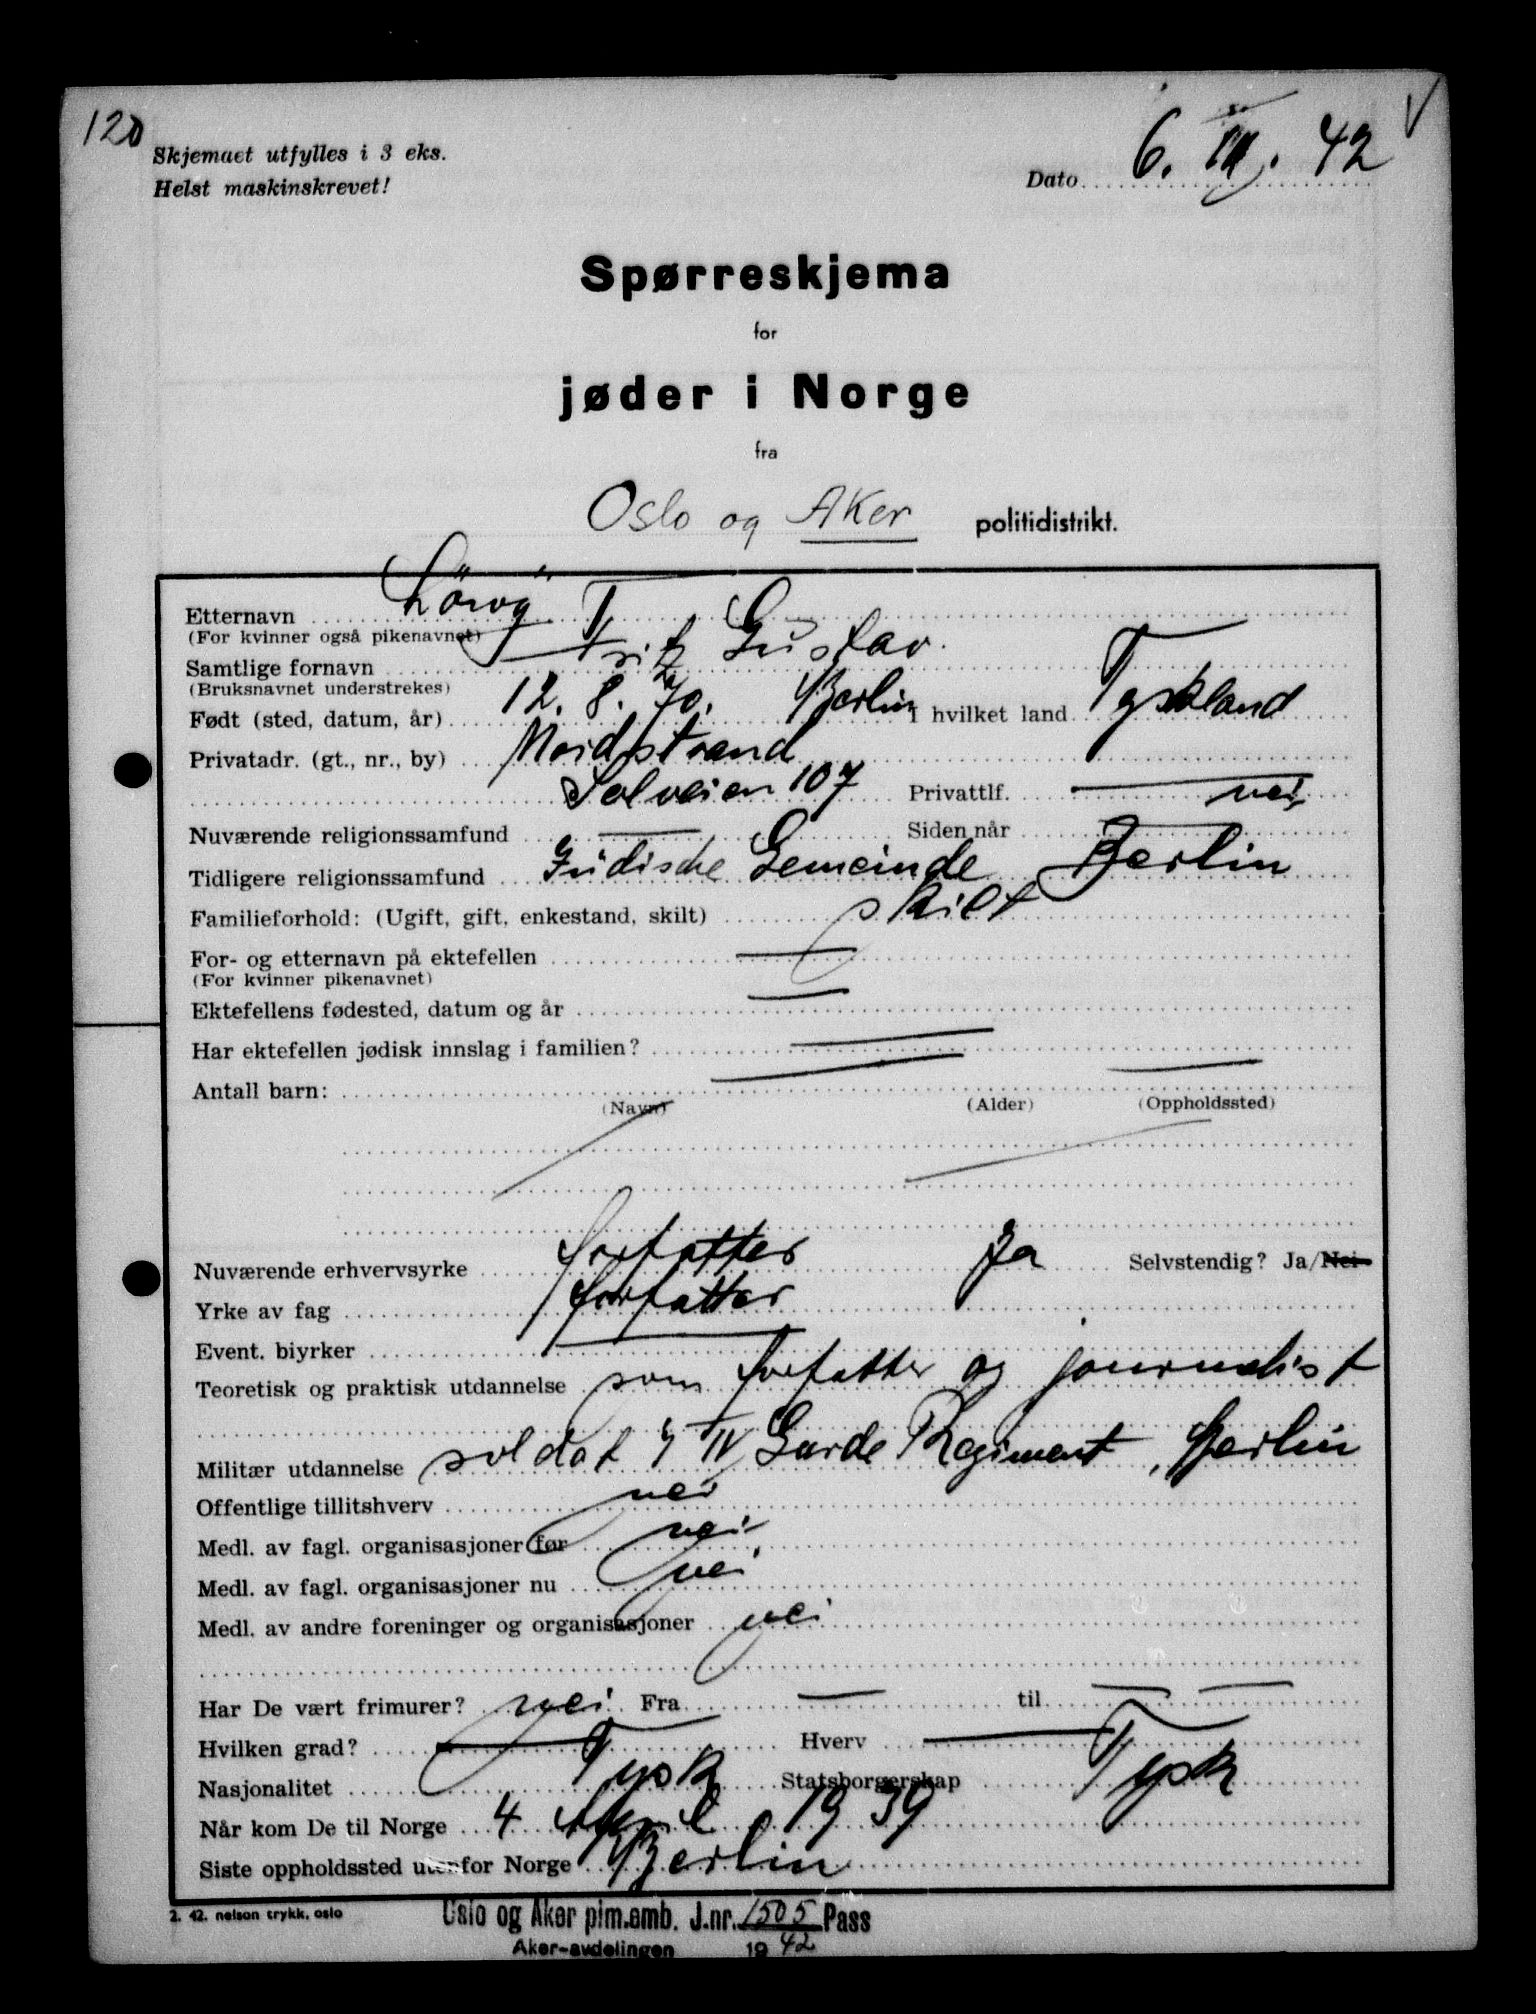 120
Skjemaet utfylles i 3 eks.
Helst maskinskrevet!
Dato 6. III. 42
Spørreskjema
for
jøder i Norge
fra
Oslo og Aker politidistrikt.
Etternavn
(For kvinner også pikenavnet)
Samtlige fornavn Fritz Gustav
(Bruksnavnet understrekes)
Født (sted, datum, år) 12. 8. 70. Berlin I hvilket land Tyskland
Privatadr. (gt., nr., by) Nordstrand
Solveien 107 Privattlf. nei
Nuværende religionssamfund — Siden når —
Tidligere religionssamfund Jüdische Gemeinde Berlin
Familieforhold: (Ugift, gift, enkestand, skilt) skilt
For- og etternavn på ektefellen —
(For kvinner pikenavnet)
Ektefellens fødested, datum og år —
Har ektefellen jødisk innslag i familien? —
Antall barn: — —
(Navn) (Alder) (Oppholdssted)
Nuværende erhvervsyrke forfatter Ja Selvstendig? Ja/Nei
Yrke av fag forfatter
Event. biyrker —
Teoretisk og praktisk utdannelse som forfatter og journalist
Militær utdannelse soldat i IV Garde Regiment, Berlin
Offentlige tillitshverv nei
Medl. av fagl. organisasjoner før nei
Medl. av fagl. organisasjoner nu nei
Medl. av andre foreninger og organisasjoner nei
Har De vært frimurer? nei Fra — til — —
Hvilken grad? — Hverv —
Nasjonalitet Tysk Statsborgerskap Tysk
Når kom De til Norge 4 April 1939
Siste oppholdssted utenfor Norge Berlin
2. 42. nelson trykk, oslo
Oslo og Aker pim.amb. J.nr. 1505 Pass
Aker-avdelingen 1942